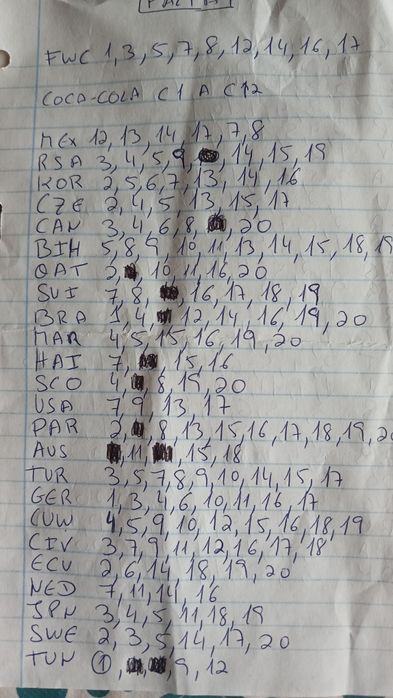 FALTA
FWC 1, 3, 5, 7, 8, 12, 14, 16, 17
COCA-COLA C1 A C12
MEX 12, 13, 14, 17, 7, 8
RSA 3, 4, 5, 9, 14, 15, 19
KOR 2, 5, 6, 7, 13, 14, 16
CZE 2, 4, 5, 13, 15, 17
CAN 3, 4, 6, 8, 20
BIH 5, 8, 9, 10, 11, 13, 14, 15, 18, 19
QAT 2, 10, 11, 16, 20
SUI 7, 8, 16, 17, 18, 19
BRA 1, 4, 12, 14, 16, 19, 20
MAR 4, 5, 15, 16, 19, 20
HAI 7, 15, 16
SCO 4, 8, 19, 20
USA 7, 9, 13, 17
PAR 2, 8, 13, 15, 16, 17, 18, 19, 20
AUS 11, 15, 18
TUR 3, 5, 7, 8, 9, 10, 14, 15, 17
GER 1, 3, 4, 6, 10, 11, 16, 17
CUW 4, 5, 9, 10, 12, 15, 16, 18, 19
CIV 3, 7, 9, 11, 12, 16, 17, 18
ECU 2, 6, 14, 18, 19, 20
NED 7, 11, 14, 16
JPN 3, 4, 5, 11, 18, 19
SWE 2, 3, 5, 14, 17, 20
TUN 1, 9, 12